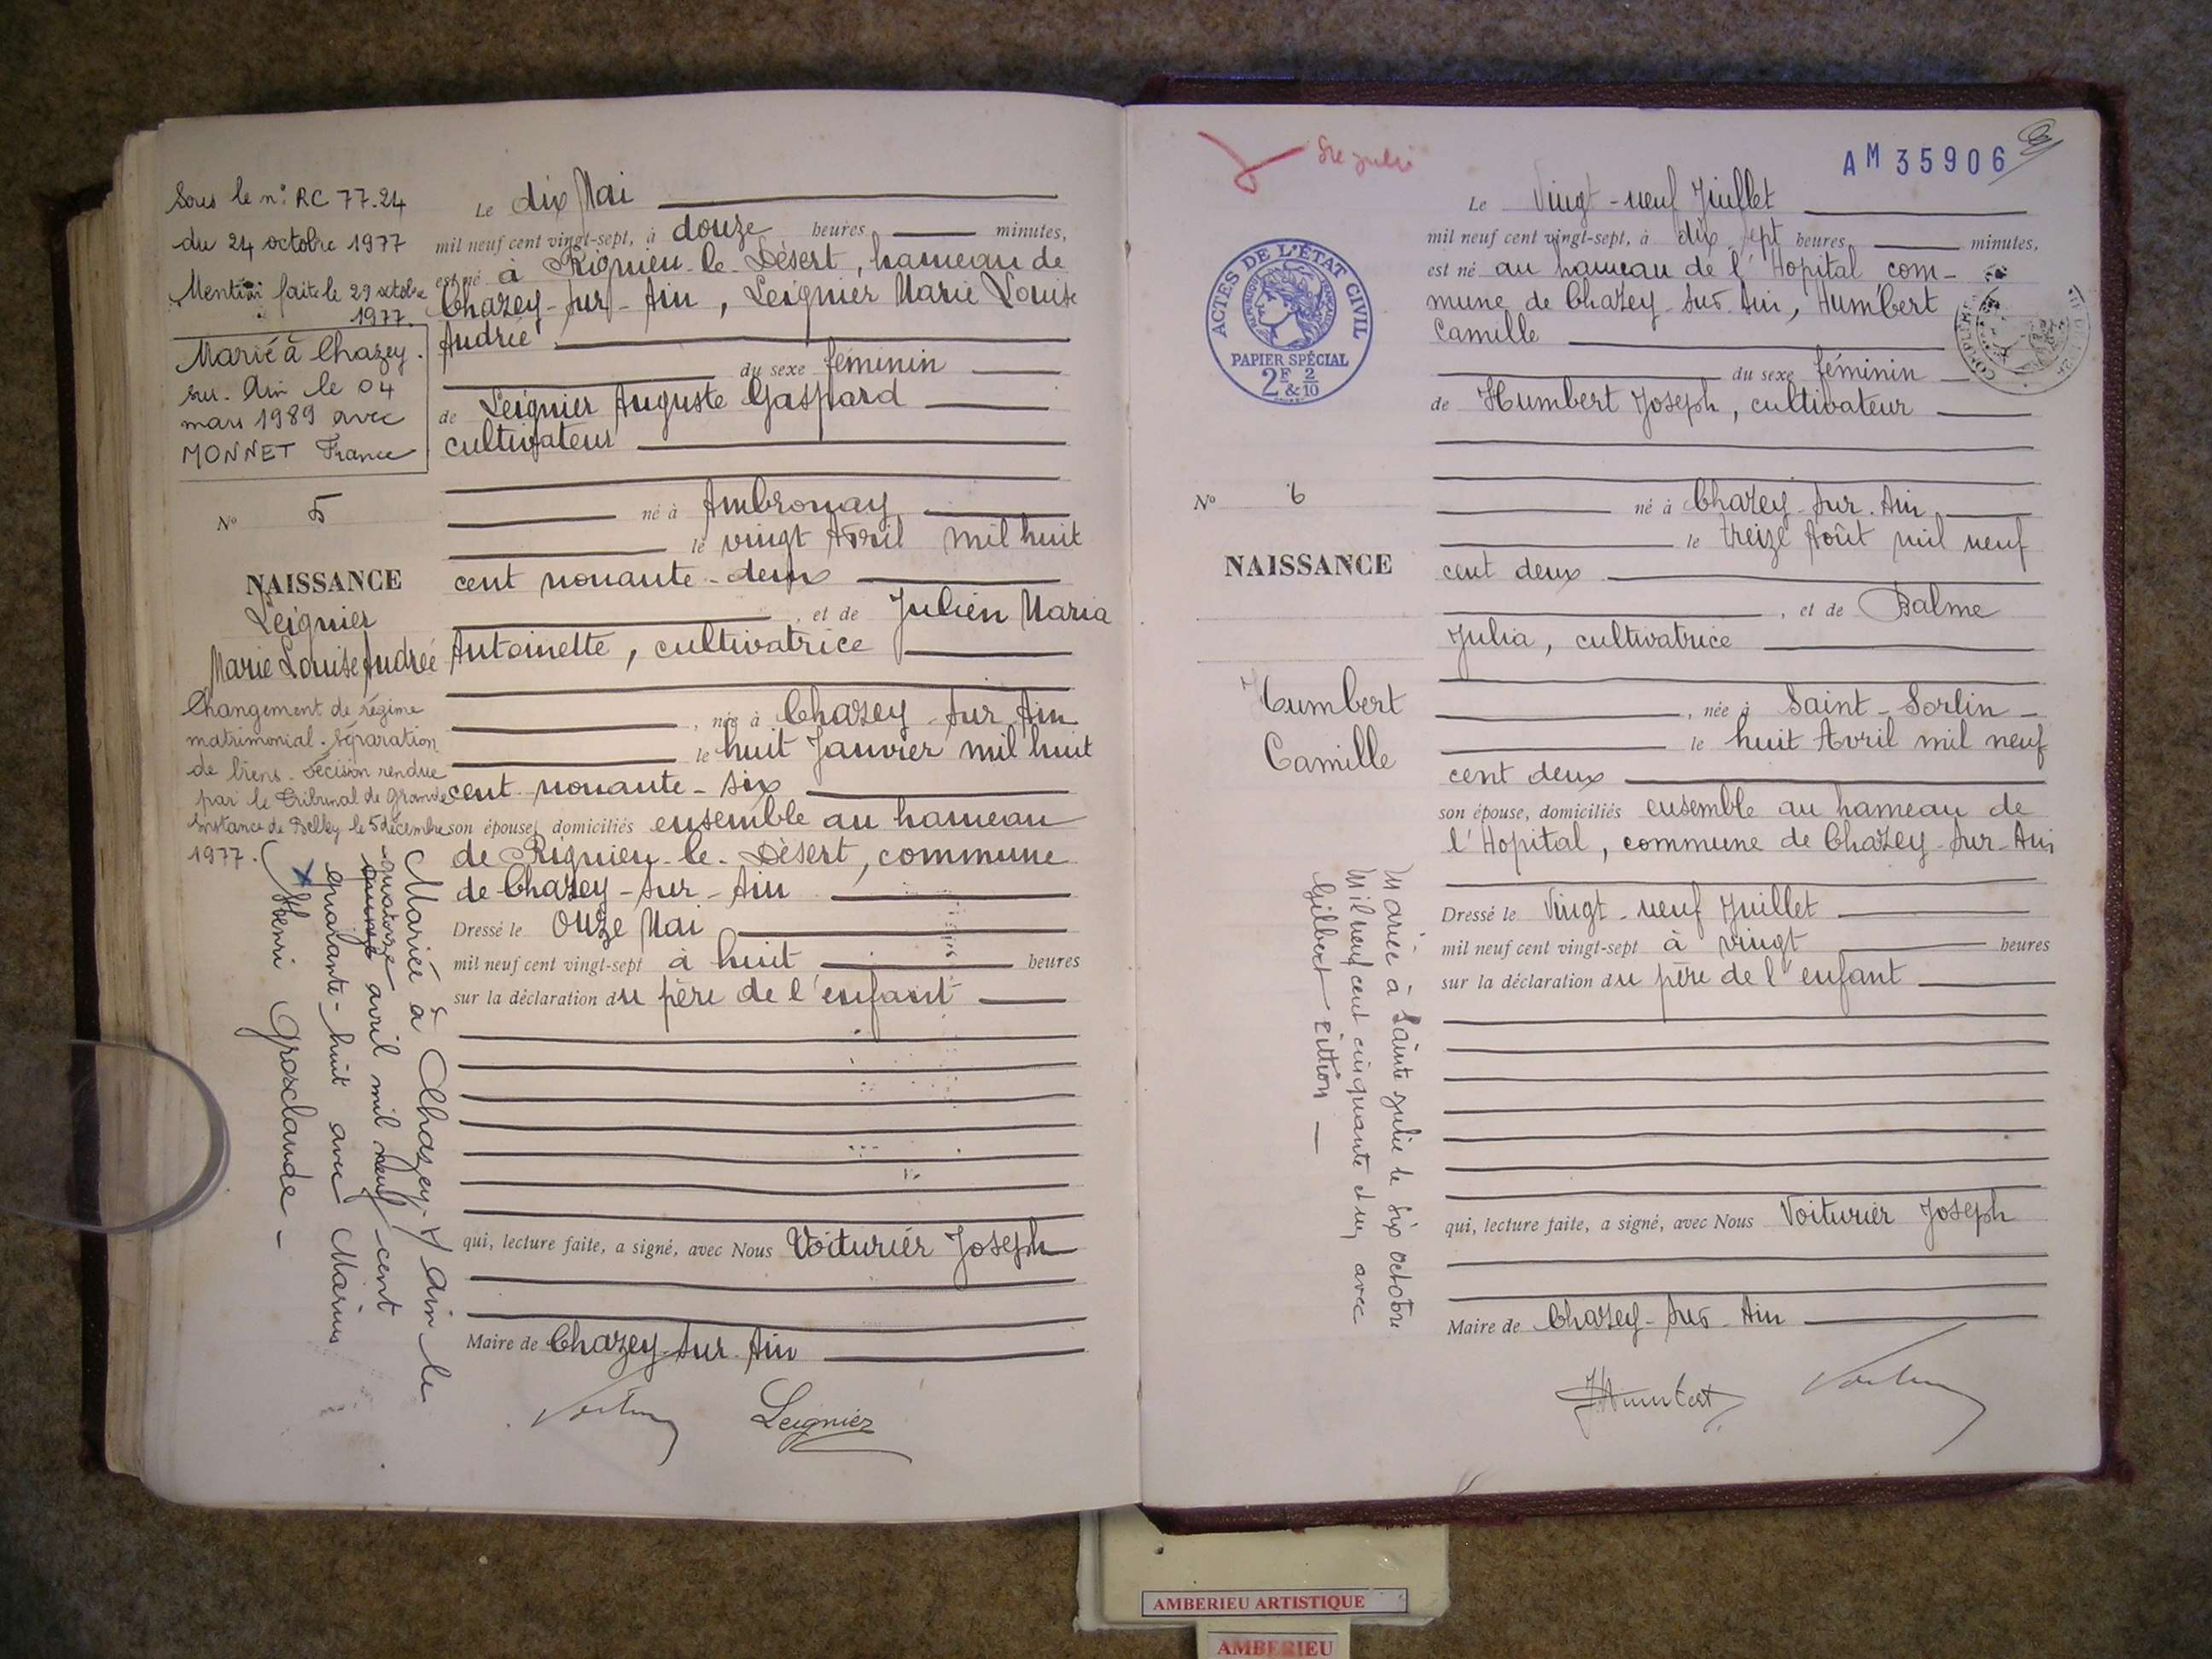 Sous le n° RC 77.24
du 24 octobre 1977
Mention faite le 29 octobre
1977.
Marié à Chazey.
sur. Ain le 04
mars 1989 avec
MONNET France
N° 5
NAISSANCE
Leignier
Marie Louise Andrée
Changement de régime
matrimonial. Séparation
de biens. Décision rendue
par le Tribunal de Grande
Instance de Belley le 5 décembre
1977.
Mariée à Chazey s/ Ain le
quatorze avril mil neuf cent
quarante-huit avec Marius
Henri Grosclaude -
Le dix Mai
mil neuf cent vingt-sept, à douze heures minutes,
est né à Rignieu-le-Désert, hameau de
Chazey-sur-Ain, Leignier Marie Louise
Andrée
du sexe féminin
de Leignier Auguste Gaspard
cultivateur
né à Ambronay
le vingt Avril mil huit
cent nonante-deux
, et de Julien Maria
Antoinette, cultivatrice
, née à Chazey-sur-Ain
le huit Janvier mil huit
cent nonante-six
son épouse, domiciliés ensemble au hameau
de Rignieu-le-Désert, commune
de Chazey-sur-Ain
Dressé le onze Mai
mil neuf cent vingt-sept à huit heures
sur la déclaration du père de l'enfant
qui, lecture faite, a signé, avec Nous Voiturier Joseph
Maire de Chazey-sur-Ain
Leignier
Ste Julie
AM 35906
ACTES DE L'ÉTAT CIVIL
RÉPUBLIQUE FRANÇAISE
PAPIER SPÉCIAL
2F & 2/10
N° 6
NAISSANCE
Humbert
Camille
Mariée à Sainte Julie le six octobre
mil neuf cent cinquante et un avec
Gilbert Pittion -
Le Vingt-neuf Juillet
mil neuf cent vingt-sept, à dix sept heures minutes,
est né au hameau de l'Hopital com-
mune de Chazey-sur-Ain, Humbert
Camille
du sexe féminin
de Humbert Joseph, cultivateur
né à Chazey-sur-Ain
le treize Août mil neuf
cent deux
, et de Balme
Julia, cultivatrice
, née à Saint-Sorlin-
le huit Avril mil neuf
cent deux
son épouse, domiciliés ensemble au hameau de
l'Hopital, commune de Chazey-sur-Ain
Dressé le Vingt-neuf Juillet
mil neuf cent vingt-sept à vingt heures
sur la déclaration du père de l'enfant
qui, lecture faite, a signé, avec Nous Voiturier Joseph
Maire de Chazey-sur-Ain
JHumbert
AMBERIEU ARTISTIQUE
AMBERIEU